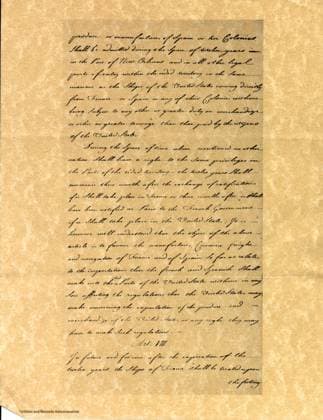 produce or manufacture of Spain or her Colonies
Shall be admitted during the Space of twelve years in
the Port of New Orleans and in all other legal
ports of entry within the ceded territory in the Same
manner as the Ships of the United States coming directly
from France or Spain or any of their Colonies without
being Subject to any other or greater duty on merchandize
or other or greater tonnage than that paid by the citizens
of the United States.
During the Space of time above mentioned no other
nation Shall have a right to the Same privileges in
the Ports of the ceded territory the twelve years Shall
commence three months after the exchange of ratifications
if it Shall take place in France or three months after it Shall
have been notified at Paris to the French Government
if it Shall take place in the United States; It is
however well understood that the object of the above
article is to favour the manufactures, Commerce freight
and navigation of France and of Spain So far as relates
to the importations that the French and Spanish Shall
make into the Said Ports of the United States without in any
Sort affecting the regulations that the United States may
make concerning the exportation of the produce and
merchandize of the United States, or any right they may
have to make Such regulations.
Art: VIII
In future and for ever after the expiration of the
twelve years, the Ships of France shall be treated upon
the footing